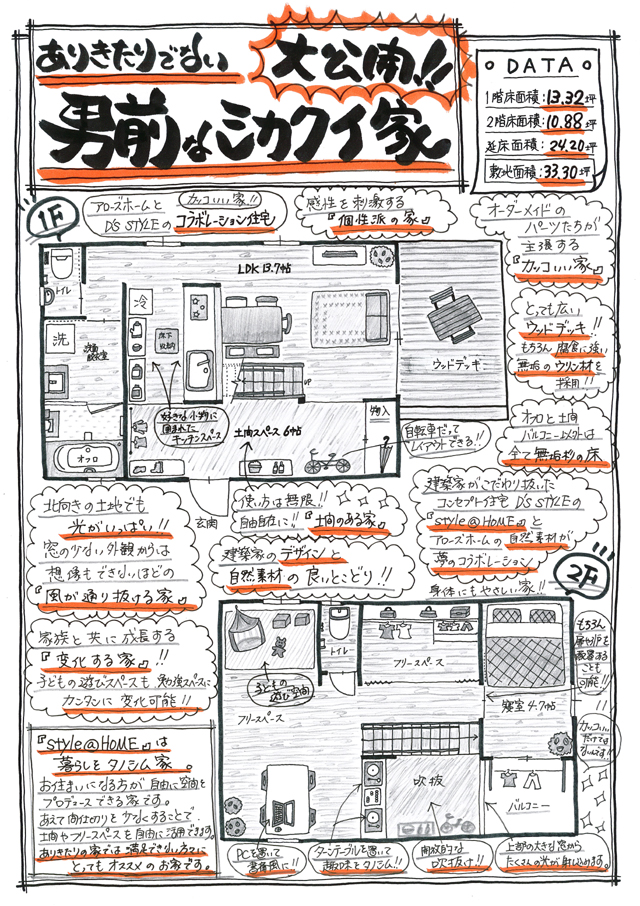 ありきたりでない
大公開!!
男前なミカクイ家
DATA
1階床面積:13.32坪
2階床面積:10.88坪
延床面積:24.20坪
敷地面積:33.30坪
1F
アローズホームと
D'S STYLEの
カッコいい家!!
コラボレーション住宅
感性を刺激する
『個性派の家』
オーダーメイドの
パーツたちが
主張する
『カッコいい家』
とっても広い
ウッドデッキ!!
もちろん腐食に強い
無垢のウリン材を
採用!!
おフロと土間
バルコニー以外は
全て無垢杉の床
LDK 13.7帖
トイレ
冷
洗
床下
収納
おフロ
UP
ウッドデッキ
物入
好きな小物に
囲まれた
キッチンスペース
土間スペース 6帖
自転車だって
レイアウトできる!!
玄関
北向きの土地でも
光がいっぱい!!
窓の少ない外観からは
想像もできないほどの
『風が通り抜ける家』
使い方は無限!!
自由自在に!!『土間のある家』
建築家のデザインと
自然素材の良いとこどり!!
建築家がこだわり抜いた
コンセプト住宅 D'S STYLEの
『style@HOME』と
アローズホームの自然素材が
夢のコラボレーション
身体にもやさしい家!!
2F
家族と共に成長する
『変化する家』!!
子どもの遊びスペースも勉強スペースに
カンタンに変化可能!!
『style@HOME』は
暮らしをタノシム家。
お住まいになる方が自由に空間を
プロデュースできる家です。
あえて間仕切りを少なくすることで、
土間やフリースペースを自由に活用できます。
ありきたりの家では満足できない方に
とってもオススメのお家です。
子どもの
遊び空間
フリースペース
トイレ
フリースペース
寝室 4.7帖
吹抜
バルコニー
もちろん
カッコいい
だけでは
ないんです!!
PCを置いて
書斎風に!!
ターンテーブルを置いて
趣味をタノシム!!
開放的な
吹抜け!!
上部の大きな窓から
たくさんの光が射し込みます。